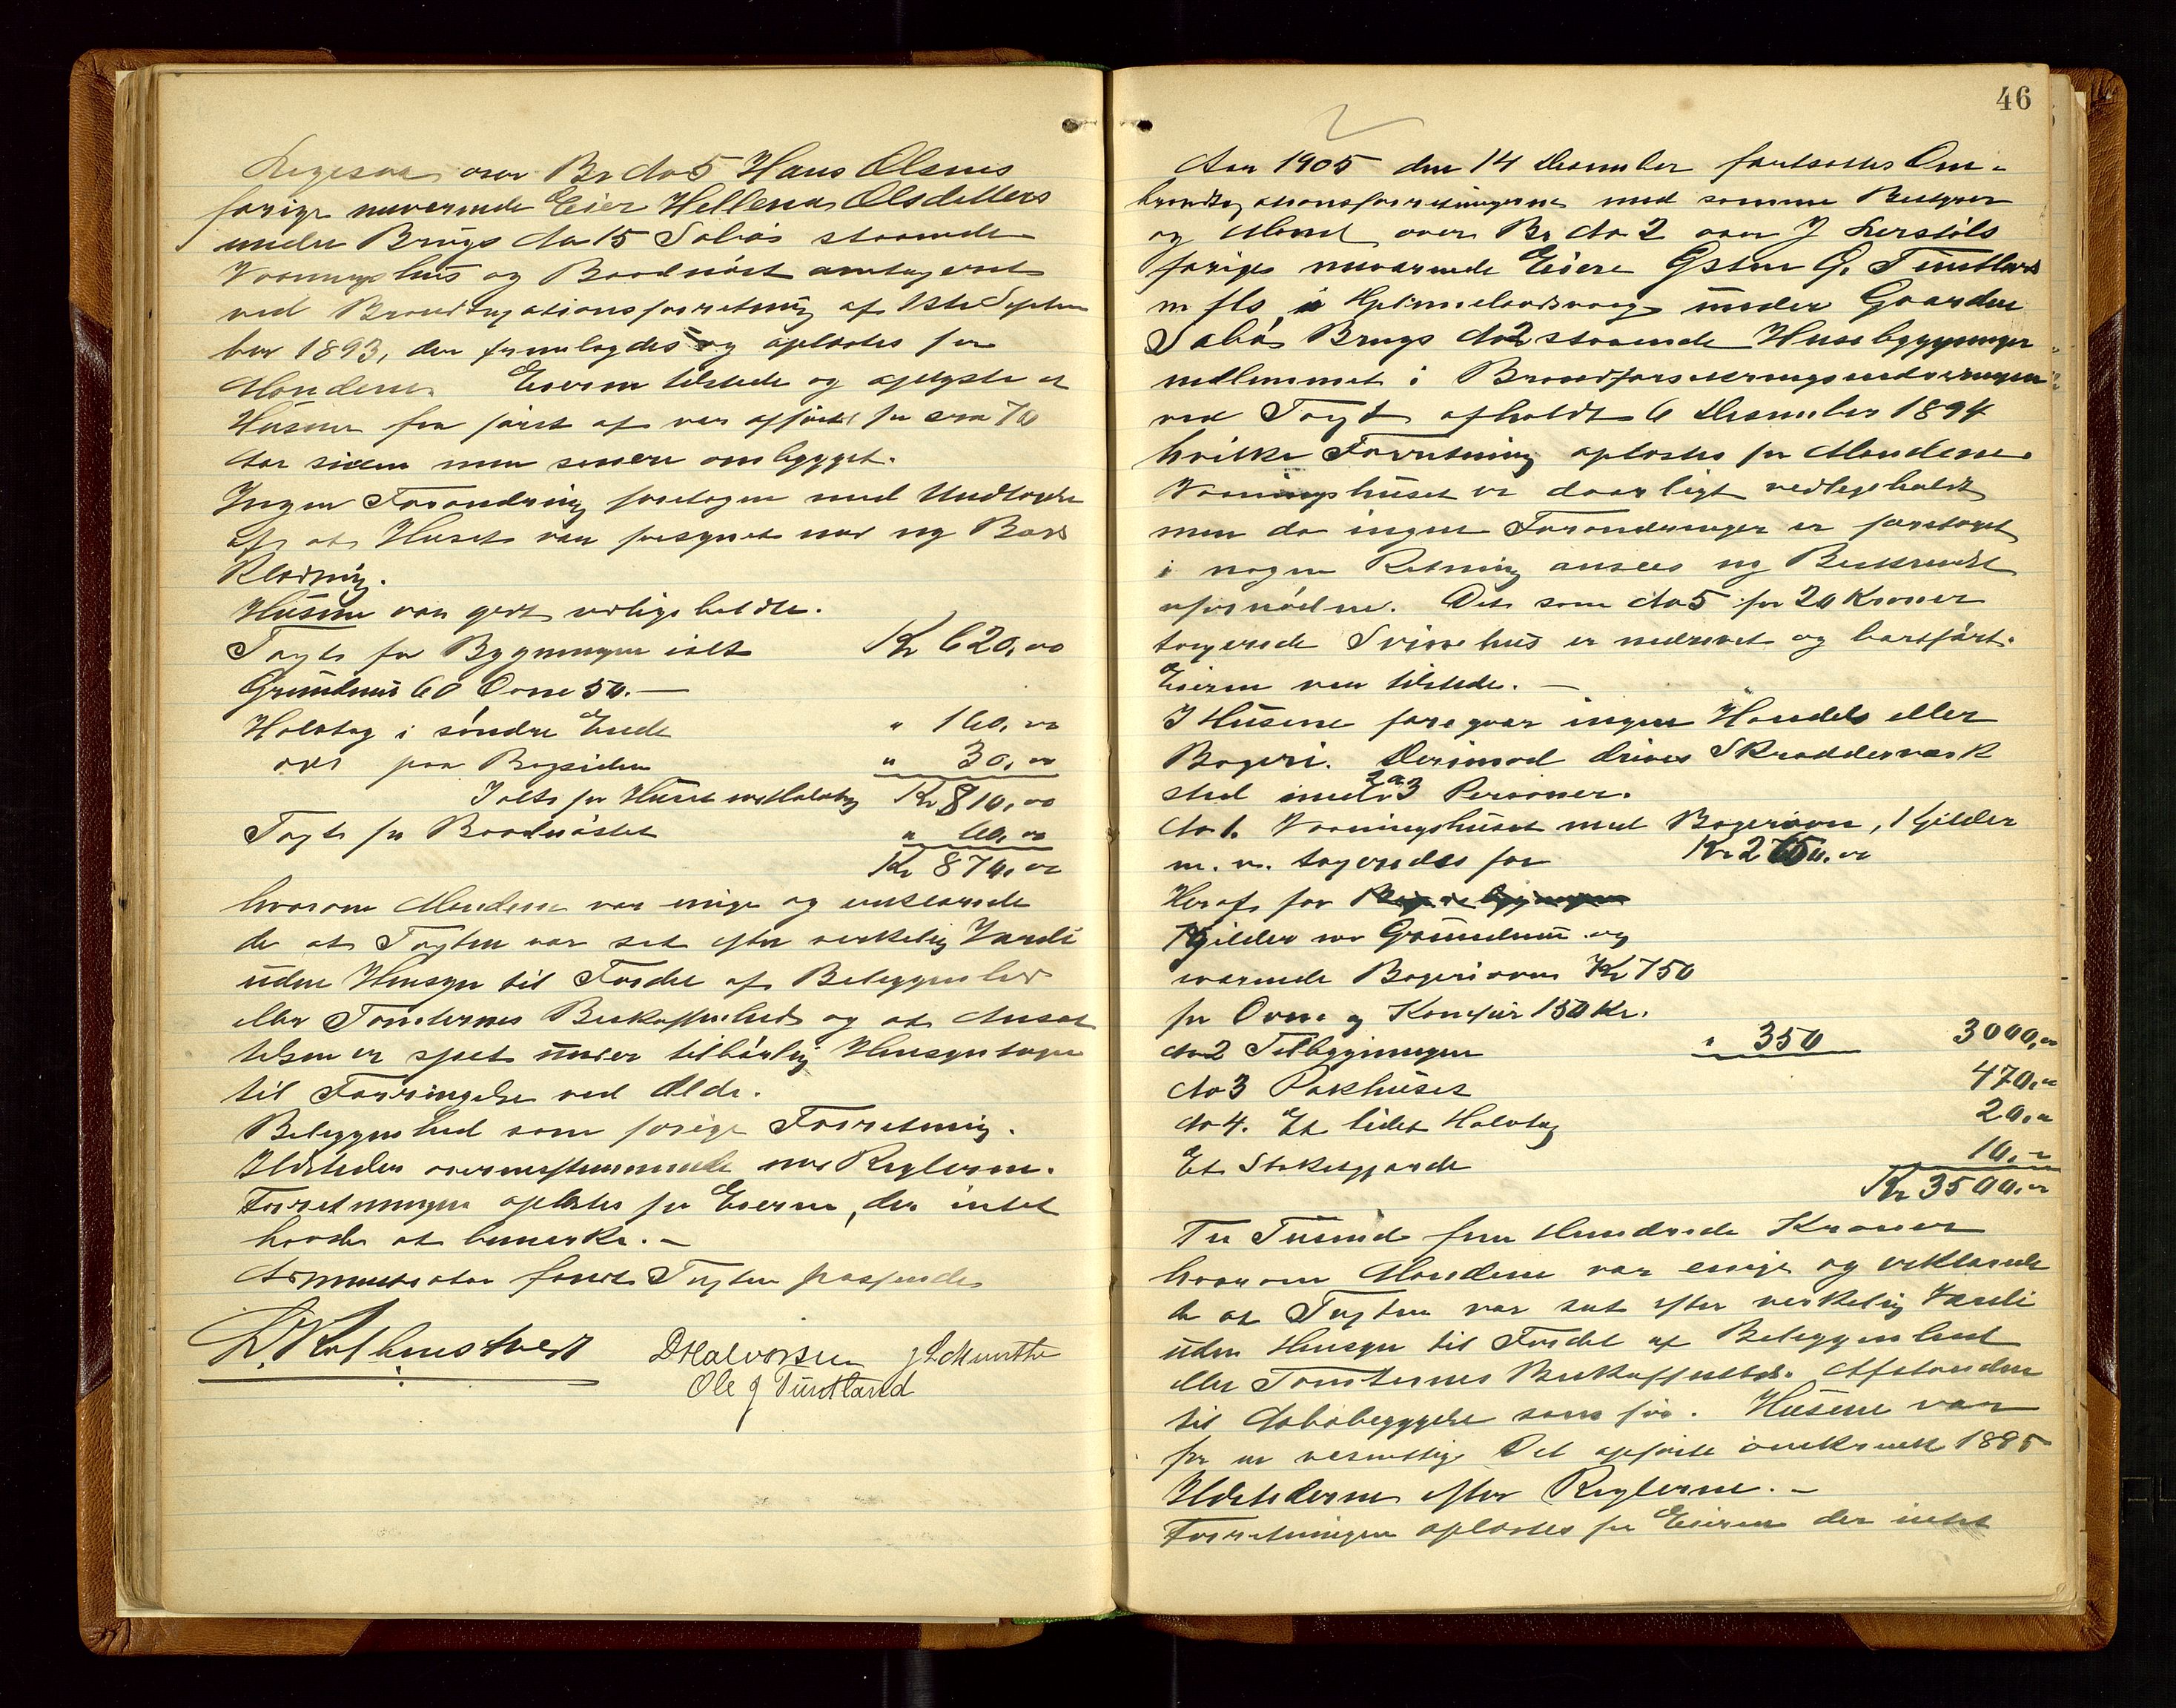 Ligesaa over Br No 5 Hans Olsens
forige nuværende Eier Hellena Olsdatters
under Brugs No 15 Sabøs staaende
Vaaningshus og Baadnøst antageret
ved Brandtaxationsforretning af 1ste Septem
ber 1893, der fremlagdes og oplæstes for
Mændene. Eieren tilstede og oplyste at
Husene fra først af var opført for cra 70
Aar siden men senere ombygget.
Ingen Forandring foretagen med Undtagelse
af at Huset var forsynet med ny Bord
Klædning.
Husene var godt vedligeholdte.
Taxt for Bygningen ialt Kr 620,00
Grundmur 60 Ovne 50.—
Halvtag i søndre Ende " 160,00
do paa Bagsiden " 30,00
Ialt for Huset med Halvtag Kr 810,00
Taxt for Baadnøstet " 60,00
Kr 870,00
hvorom Mændene var enige og erklærede
de at Taxten var sat efter virkelig Værdi
uden Hensyn til Fordel af Beliggenhed
eller Tomternes Beskaffenhed og at Ansæt
telsen er skeet under tilbørlig Hensyntagen
til Forringelse ved Ælde.
Beliggenhed som forige Forretning.
Ildsteder overensstemmende med Reglerne.
Forretningen oplæstes for Eieren, der intet
havde at bemærke. —
Administrator fandt Taxten passende
D Halvorsen J L Munthe
Ole J Tuntland
46
Aar 1905 den 14 Desember fortsattes Om-
brandtaxationsforretningerne med samme Bestyrer
og Mænd over Br No 2 over J Lerstøls
forige nuværende Eiere Gsten G. Tuntland
m fls i Espinnelandsvaag under Gaarden
Sabø Brugs No 2 staaende Husebygninger
indlemmet i Brandforsikringsindretningen
ved Taxt afholdt 6 Desember 1894
hvilke Forretning oplæstes for Mændene.
Vaaningshuset er daarligt vedligeholdt
men da ingen Forandringer er foretaget
i nogen Retning ansees ny Beskrivelse
ufornøden. Det som No 5 for 20 Kroner
taxerede Svinehus er nedrevet og bortført.
Eieren var tilstede. —
I Husene foregaar ingen Handel eller
Bageri. Derimod drives Skrædderværk
sted med 2 a 3 Personer.
No 1. Vaaningshuset med Bageriovn, 1 Kjelder
m. v. taxeredes for Kr 2650,00
Heraf for
Kjelder m Grundmur og
værende Bageriovn Kr 750
for Ovne og Komfur 150 Kr.
No 2 Tilbygningen " 350 3000,00
No 3 Pakhuset 470,00
No 4. Et lidet Halvtag 20,00
Et Stakitgjærde 10,00
Kr 3500,00
Tre Tusinde fem Hundrede Kroner
hvorom Mændene var enige og erklærede
de at Taxten var sat efter virkelig Værdi
uden Hensyn til Fordel af Beliggenhed
eller Tomternes Beskaffenhed. Afstanden
til Nabobebyggelse som før. Husene var
for en væsentlig Del opførte omkring 1885
Ildstederne efter Reglerne. —
Forretningen oplæstes for Eieren der intet